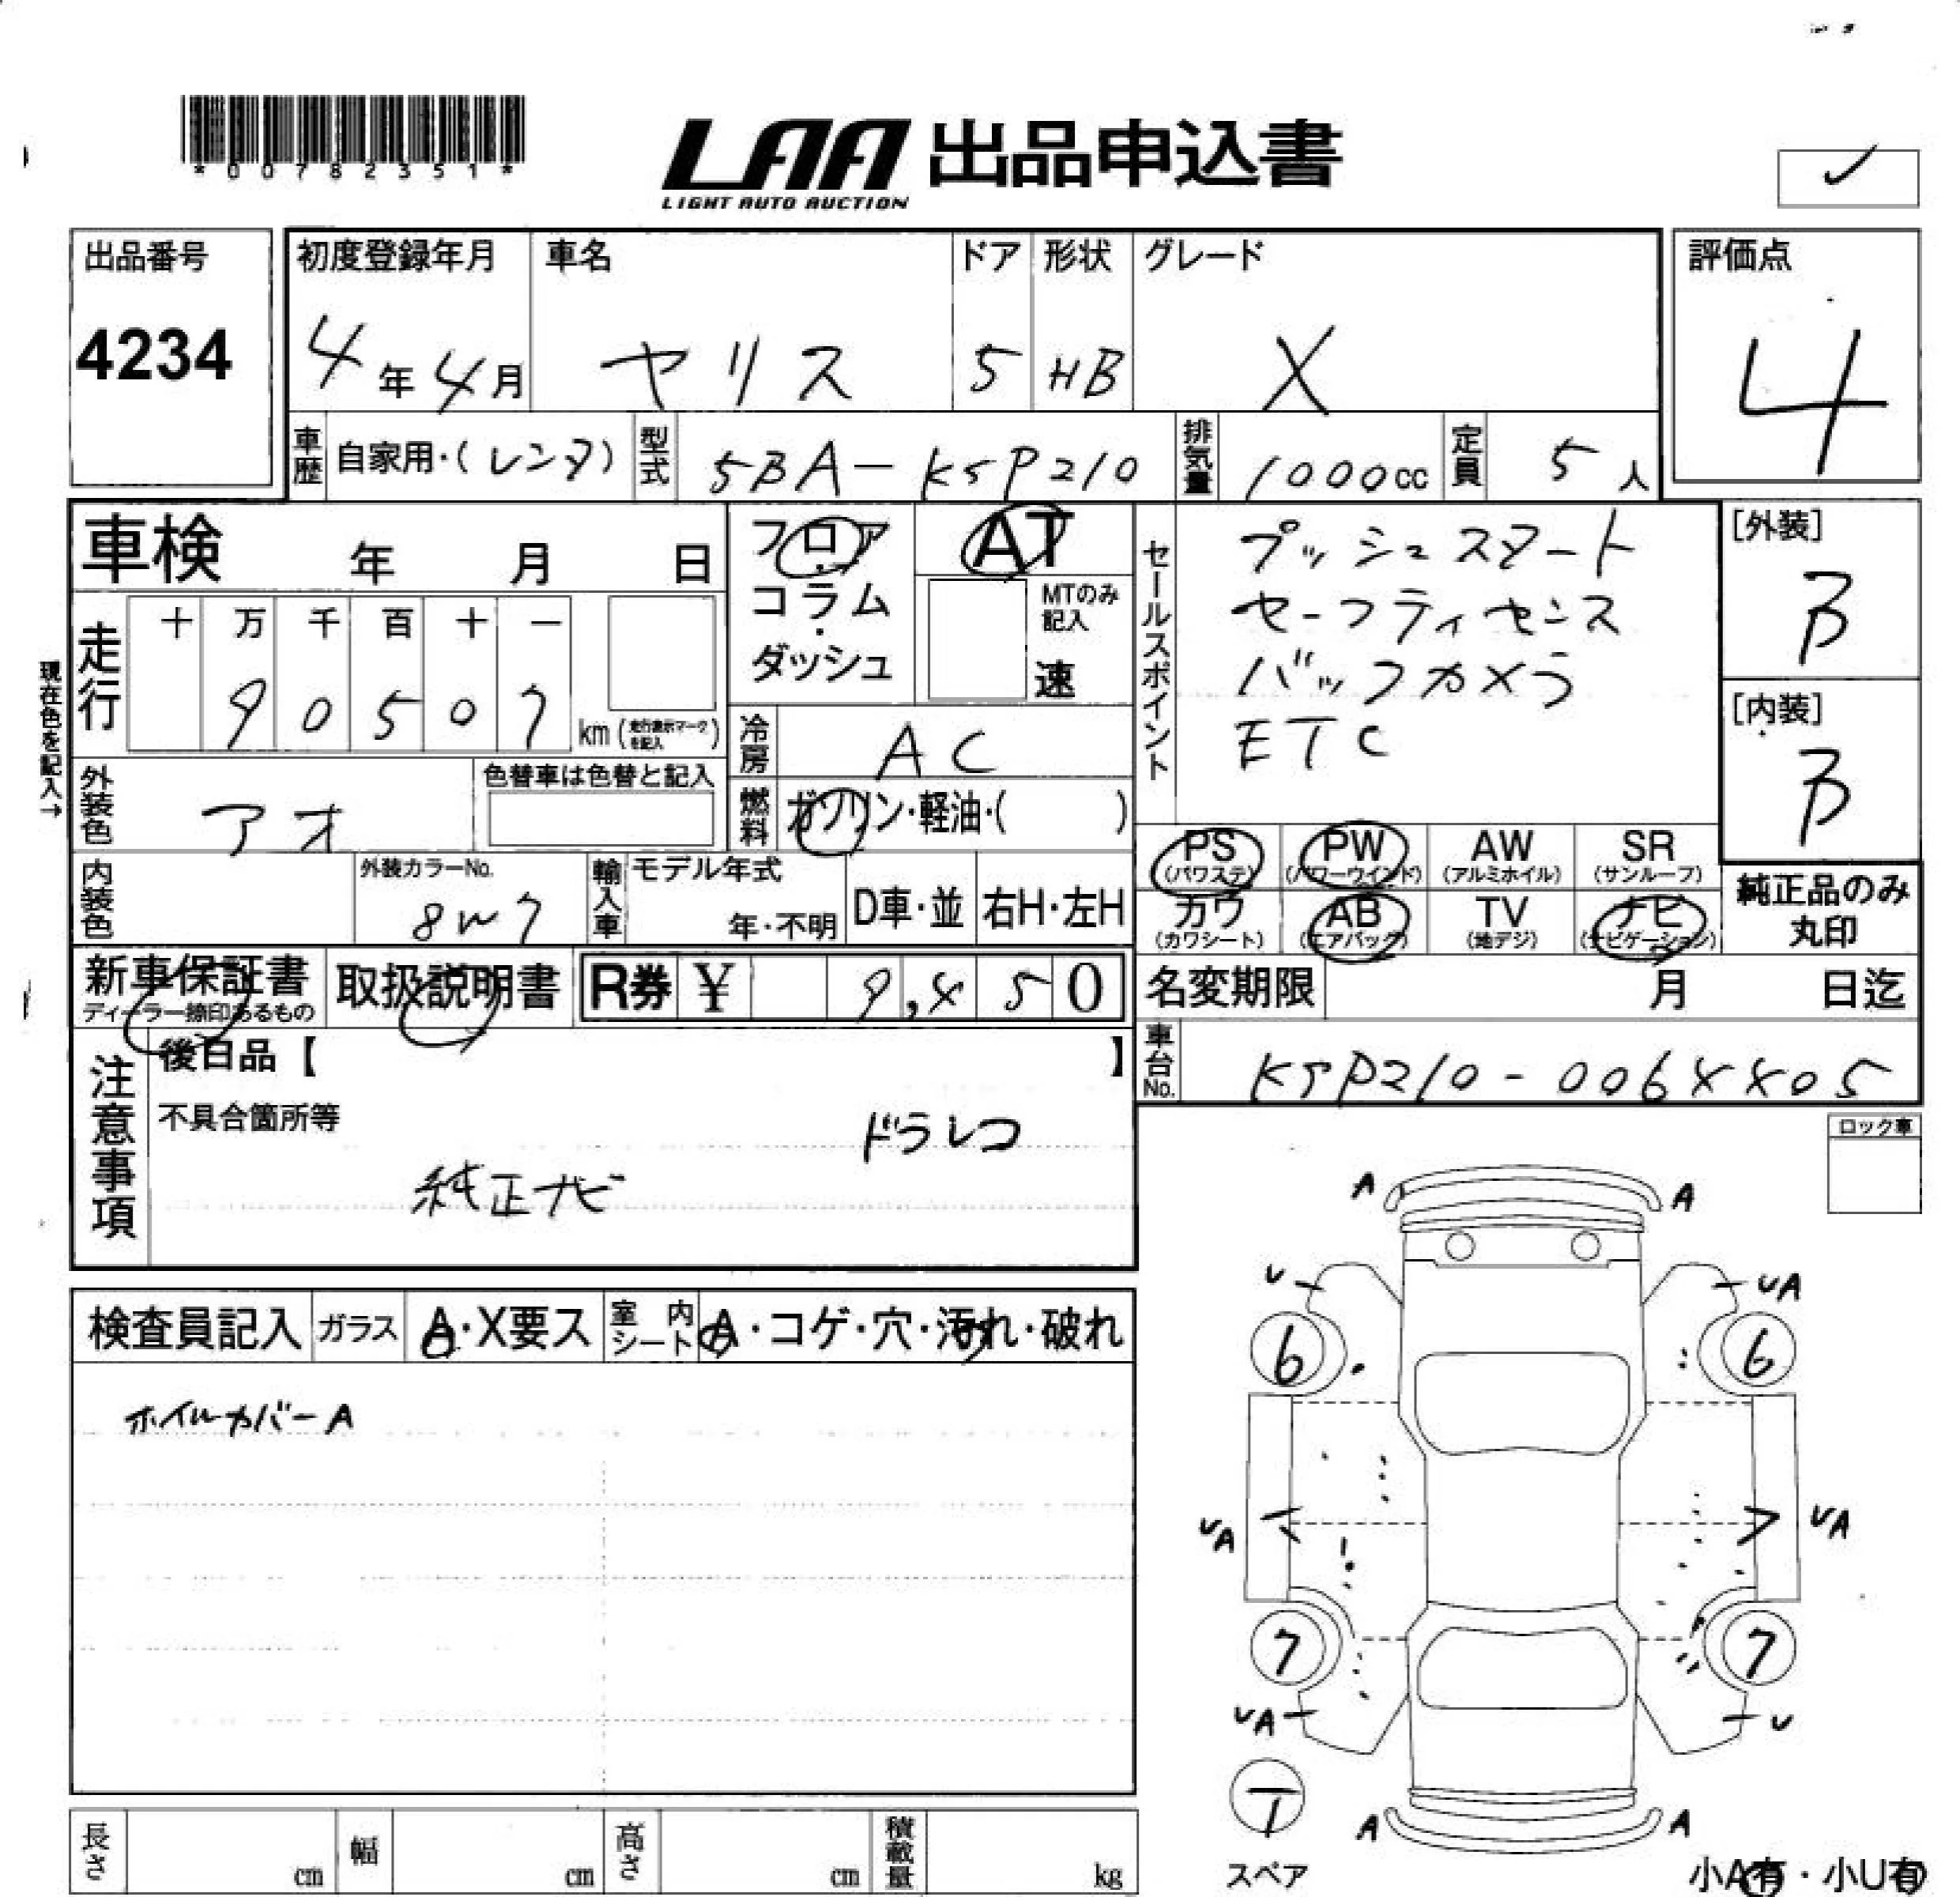 *00782351*
LAA 出品申込書
LIGHT AUTO AUCTION
✓
出品番号
4234
初度登録年月
4年4月
車名
ヤリス
ドア
5
形状
HB
グレード
X
評価点
4
車歴 自家用・(レンタ)
型式 5BA-KSP210
排気量 1000cc
定員 5人
車検 年 月 日
フロア・コラム・ダッシュ
AT
MTのみ記入
速
セールスポイント
プッシュスタート
セーフティセンス
バックカメラ
ETC
[外装]
B
[内装]
B
現在色を記入→
走行
十 万 千 百 十 一
9 0 5 0 7 km(走行表示マークを記入)
冷房 AC
外装色 アオ
色替車は色替と記入
燃料 ガソリン・軽油・( )
内装色
外装カラーNo.
8W7
輸入車
モデル年式
年・不明
D車・並
右H・左H
PS(パワステ)
PW(パワーウインド)
AW(アルミホイル)
SR(サンルーフ)
カワ(カワシート)
AB(エアバッグ)
TV(地デジ)
ナビ(ナビゲーション)
純正品のみ丸印
新車保証書
ディーラー捺印あるもの
取扱説明書
R券 ¥ 9,450
名変期限 月 日迄
車台No. KSP210-0064405
注意事項
後日品【 】
不具合箇所等
ドラレコ
純正ナビ
ロック車
検査員記入
ガラス
A・X要ス
室内シート
A・コゲ・穴・汚れ・破れ
ホイルカバーA
A A
U UA
6 6
UA UA
7 7
UA U
T
A A
スペア
小A有・小U有
長さ cm
幅 cm
高さ cm
積載量 kg